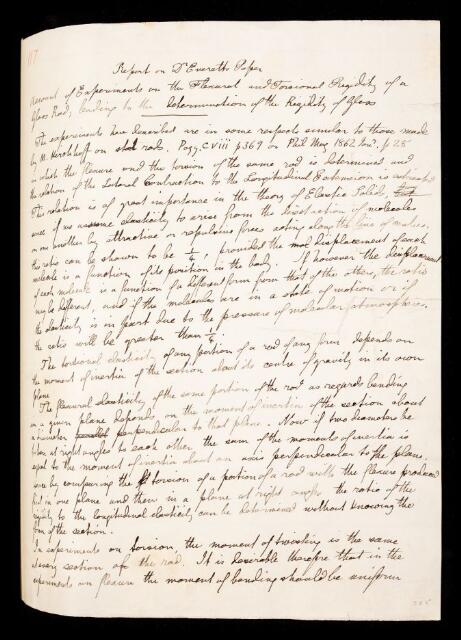 117
Report on Dr Everett's Paper
Account of Experiments on the Flexural and Torsional Rigidity of a
Glass Rod, leading to the determination of the Rigidity of Glass
The experiments here described are in some respects similar to those made
by M. Kirchhoff on steel rods. Pogg. CVIII p369 or Phil Mag 1862 Jan. p 28
in which the flexure and the torsion of the same rod is determined and
the relation of the Lateral Contraction to the Longitudinal Extension is
This relation is of great importance in the theory of Elastic Solids,
once if we assume elasticity to arise from the action of molecules
on one another by attractive or repulsive forces acting along the line of centres,
this ratio can be shown to be 1/4, provided the displacement of each
molecule is a function of its position in the body. If however the displacement
of each molecule is a function of a different form from that of the others, the ratio
may be different, and if the molecules are in a state of motion or if
the elasticity is in part due to the pressure of molecular atmospheres,
the ratio will be greater than 1/4.
The torsional elasticity of any portion of a rod of any form depends on
the moment of inertia of the section about its centre of gravity in its own
plane
The flexural elasticity of the same portion of the rod as regards bending
in a given plane depends on the moment of inertia of the section about
a diameter perpendicular to that plane. Now if two diameters be
taken at right angles to each other the sum of the moments of inertia is
equal to the moment of inertia about an axis perpendicular to the plane.
Hence by comparing the torsion of a portion of a rod with the flexure produced
first in one plane and then in a plane at right angles the ratio of the
rigidity to the longitudinal elasticity can be determined without knowing the
form of the section.
In experiments on torsion, the moment of twisting is the same
in every section of the rod. It is desirable therefore that in the
experiments on flexure the moment of bending should be uniform